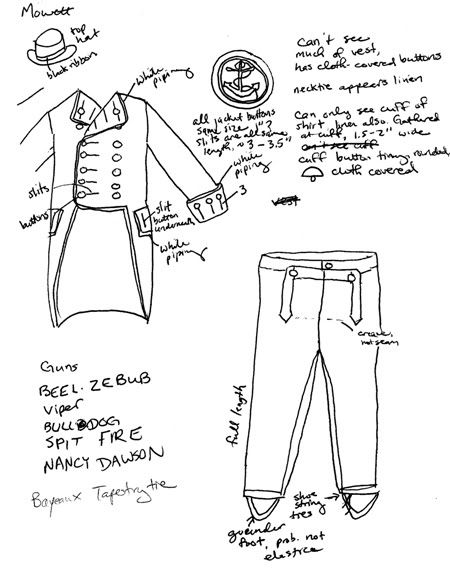 Mowett
top
hat
black ribbon
white piping
can't see
much of vest,
has cloth-covered buttons
necktie appears linen
all jacket buttons
same size, 1"?
slits are all same
length, ~ 3 - 3.5"
can only see cuff of
shirt, linen also. Gathered
at cuff, 1.5-2" wide
can't see cuff
cuff button tiny, rounded,
cloth covered
vest
white
piping
3
slits
buttons
slit
button
underneath
white
piping
crease,
not seam
full length
Guns
BEEL.ZEBUB
Viper
BULLDOG
SPIT FIRE
NANCY DAWSON
Bayeaux Tapestry tie
shoe
string
ties
foot, prob. not
elastic